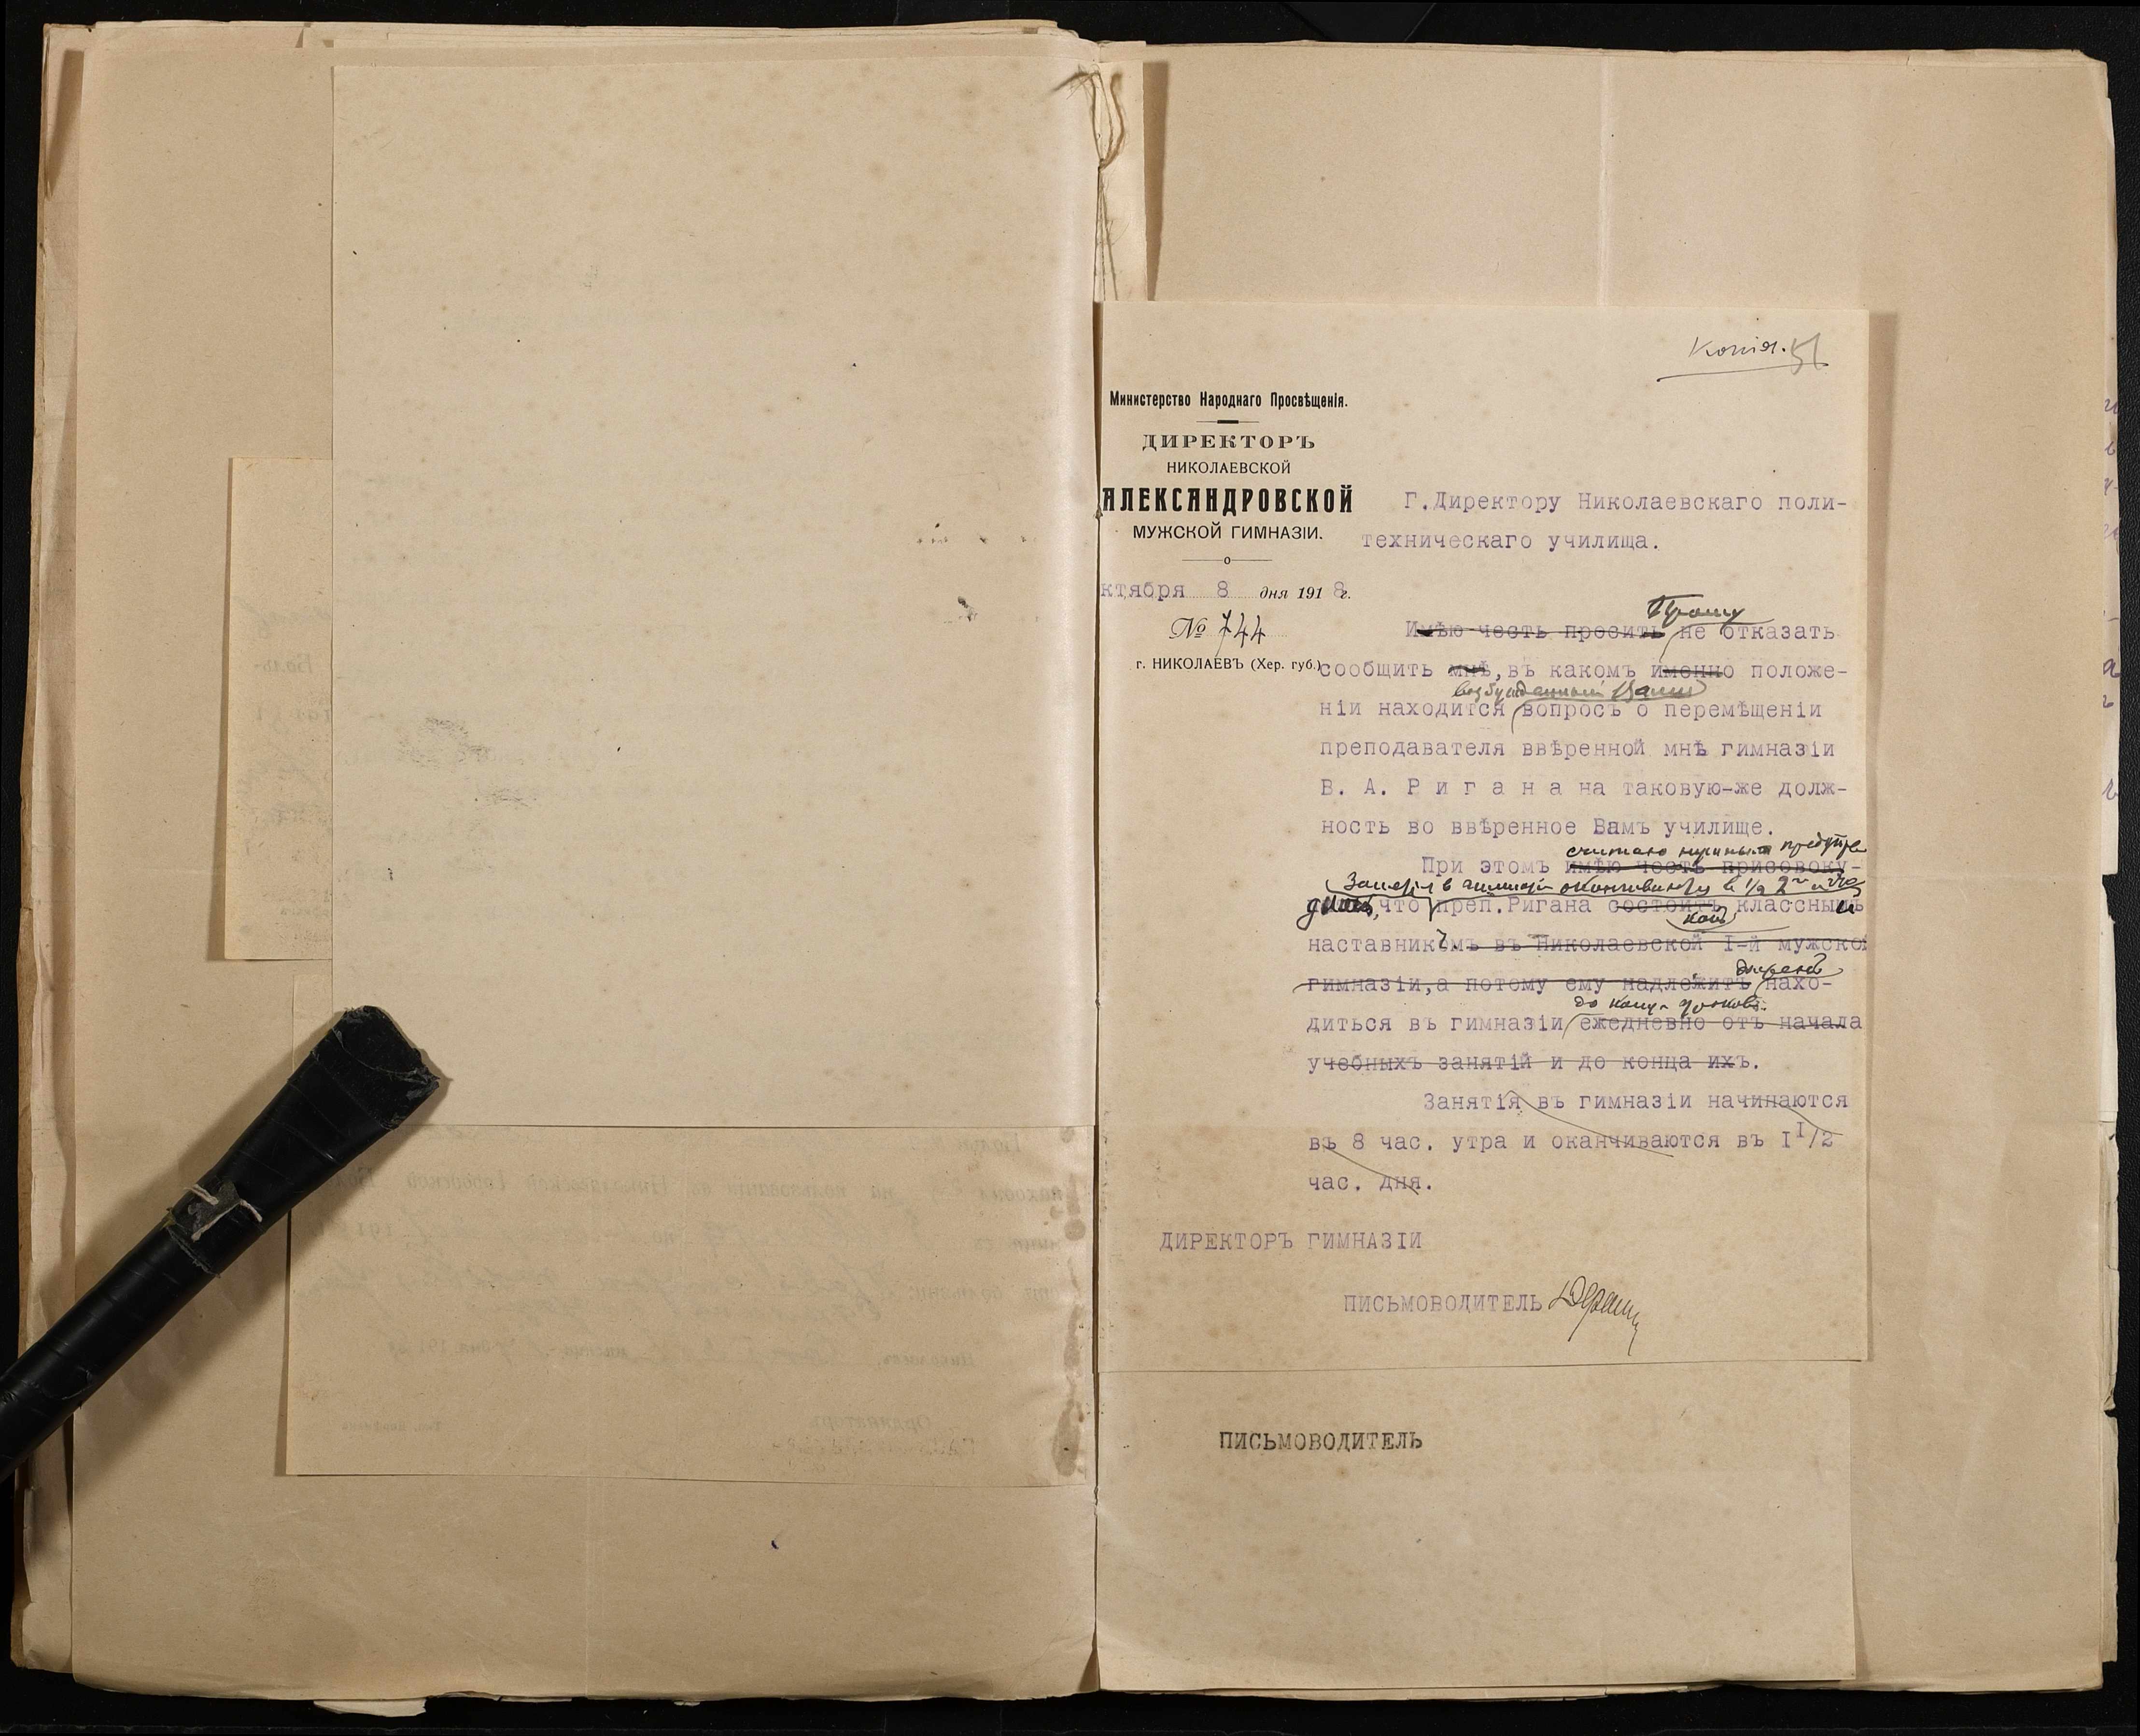 Копія. 51
Министерство Народнаго Просвѣщенія.
ДИРЕКТОРЪ
НИКОЛАЕВСКОЙ
АЛЕКСАНДРОВСКОЙ
МУЖСКОЙ ГИМНАЗІИ.
ктября 8 дня 1918г.
№ 744
г. НИКОЛАЕВЪ (Хер. губ.)
Г.Директору Николаевскаго поли-
техническаго училища.
Прошу
Имѣю честь просить не отказать
сообщить мнѣ, въ какомъ именно положе-
возбужденный Вами
ніи находится вопросъ о перемѣщеніи
преподавателя ввѣренной мнѣ гимназіи
В. А. Р и г а н а на таковую-же долж-
ность во ввѣренное Вамъ училище.
считаю нужнымъ предупре
При этомъ имѣю честь присовоку-
Занятія в гимназіи оканчиваются в 1/2 2
дить, что преп.Ригана состоитъ классный
какъ
наставникомъ въ Николаевской I-й мужской
долженъ
гимназіи,а потому ему надлежитъ нахо-
до конца уроковъ.
диться въ гимназіи ежедневно отъ начала
учебныхъ занятій и до конца ихъ.
Занятія въ гимназіи начинаются
въ 8 час. утра и оканчиваются въ I I/2
час. дня.
ДИРЕКТОРЪ ГИМНАЗІИ
ПИСЬМОВОДИТЕЛЬ
ПИСЬМОВОДИТЕЛЬ